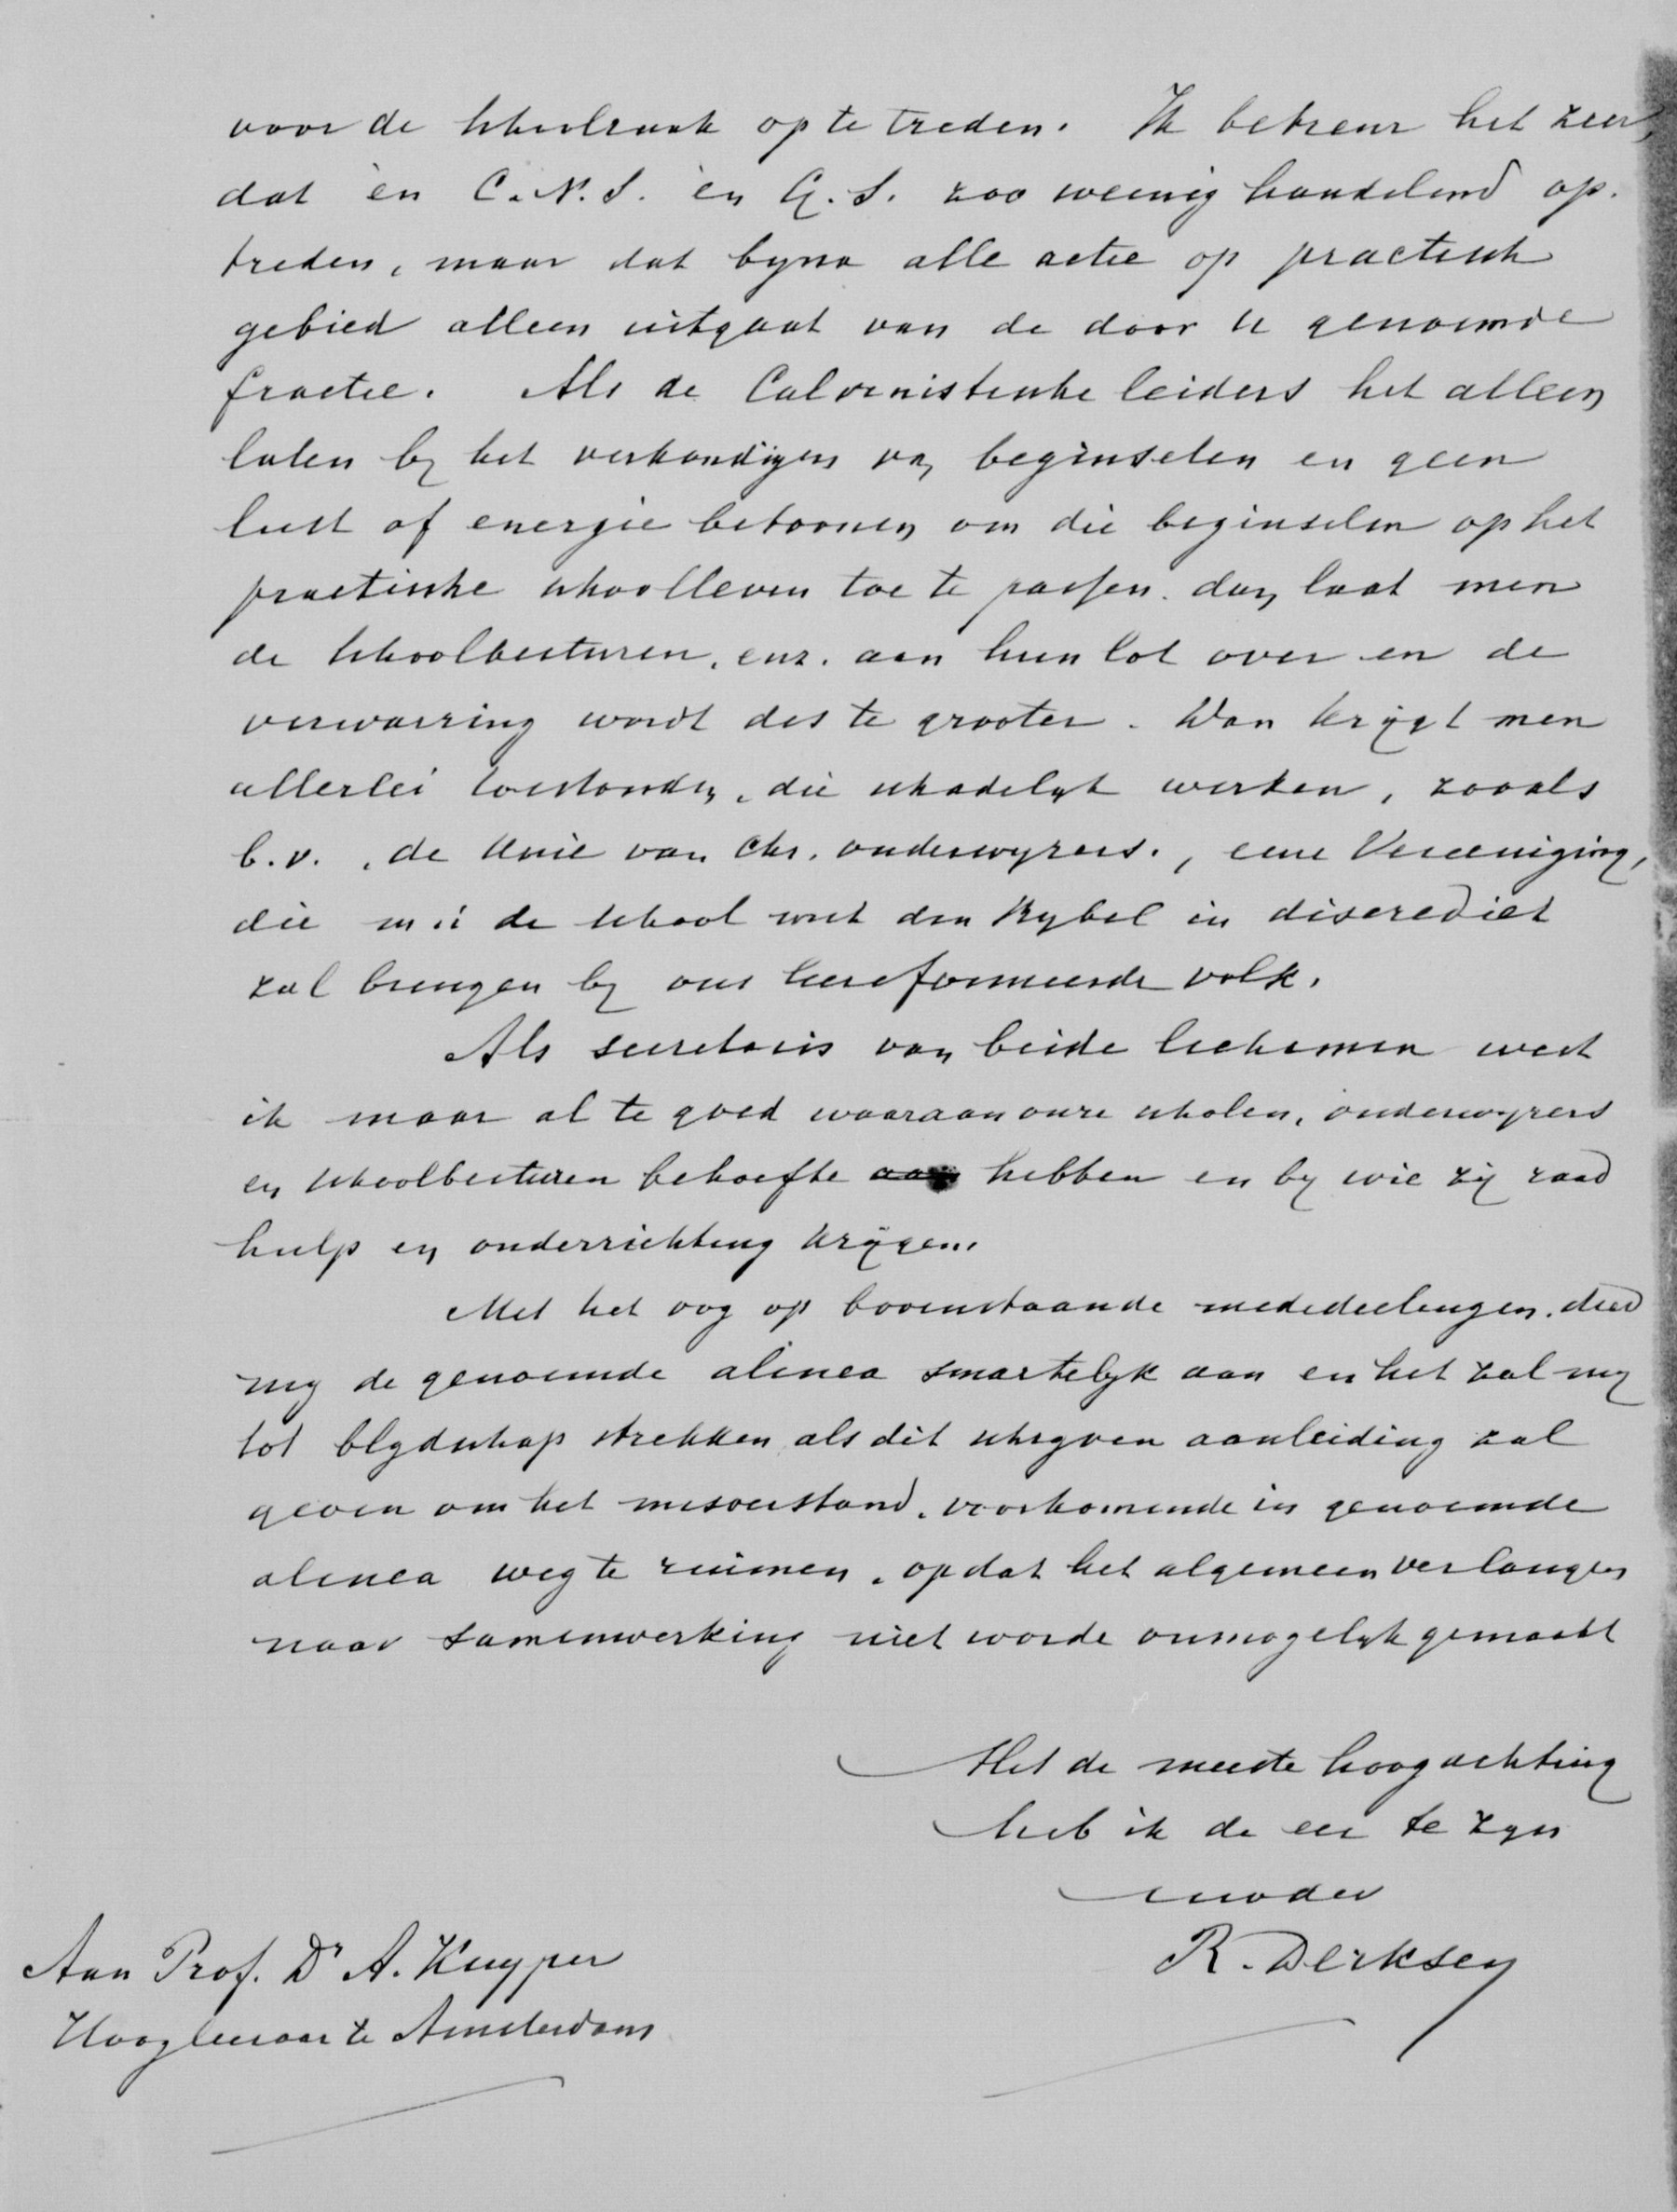 voor de schoolzaak op te treden. Ik betreur het zeer,
dat èn C.N.S. èn G.S. zoo weinig handelend op-
treden, maar dat byna alle actie op practisch
gebied alleen uitgaat van de door U genoemde
fractie. Als de Calvinistische leiders het alleen
laten by het verkondigen van beginselen en geen
lust of energie betoonen om die beginselen op het
practische schoolleven toe te passen, dan laat men
de schoolbesturen, enz. aan hun lot over en de
verwarring wordt des te grooter. Dan krijgt men
allerlei toestanden, die schadelyk werken, zooals
b.v. de Unie van Chr. onderwyzers., eene Vereeniging,
die m.i. de school met den Bybel in discrediet
zal brengen by ons Gereformeerde volk.
Als secretaris van beide lichamen weet
ik maar al te goed waaraan onze scholen, onderwyzers
en schoolbesturen behoefte hebben en by wie zij raad
hulp en onderrichting krijgen.
Met het oog op bovenstaande mededeelingen, deed
my de genoemde alinea smartelyk aan en het zal my
tot blydschap strekken als dit schryven aanleiding zal
geven om het misverstand, voorkomende in genoemde
alinea weg te ruimen, opdat het algemeen verlangen
naar samenwerking niet worde onmogelyk gemaakt
Met de meeste hoogachting
heb ik de eer te zyn
R. Derksen
Aan Prof. Dr A. Kuyper
Hoogleeraar te Amsterdam